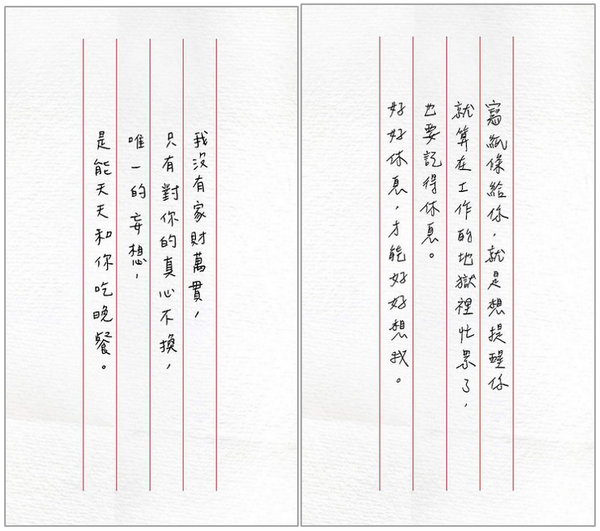 我沒有家財萬貫，
只有對你的真心不換，
唯一的妄想，
是能天天和你吃晚餐。
寫紙條給你，就是想提醒你
就算在工作的地獄裡忙累了，
也要記得休息。
好好休息，才能好好想我。